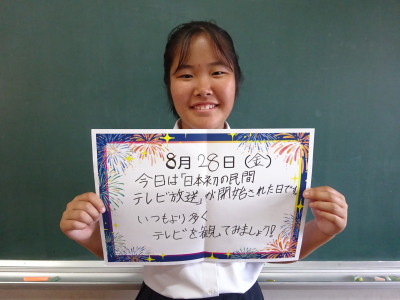 8月28日(金)
今日は「日本初の民間
テレビ放送」が開始された日です
いつもより多く
テレビを観てみましょう!!